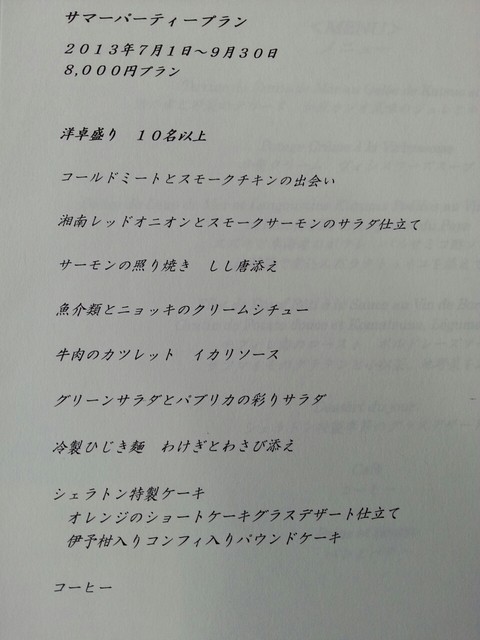 サマーパーティープラン
２０１３年７月１日～９月３０日
８,０００円プラン
洋卓盛り　１０名以上
コールドミートとスモークチキンの出会い
湘南レッドオニオンとスモークサーモンのサラダ仕立て
サーモンの照り焼き　しし唐添え
魚介類とニョッキのクリームシチュー
牛肉のカツレット　イカリソース
グリーンサラダとパプリカの彩りサラダ
冷製ひじき麺　わけぎとわさび添え
シェラトン特製ケーキ
オレンジのショートケーキグラスデザート仕立て
伊予柑入りコンフィ入りパウンドケーキ
コーヒー